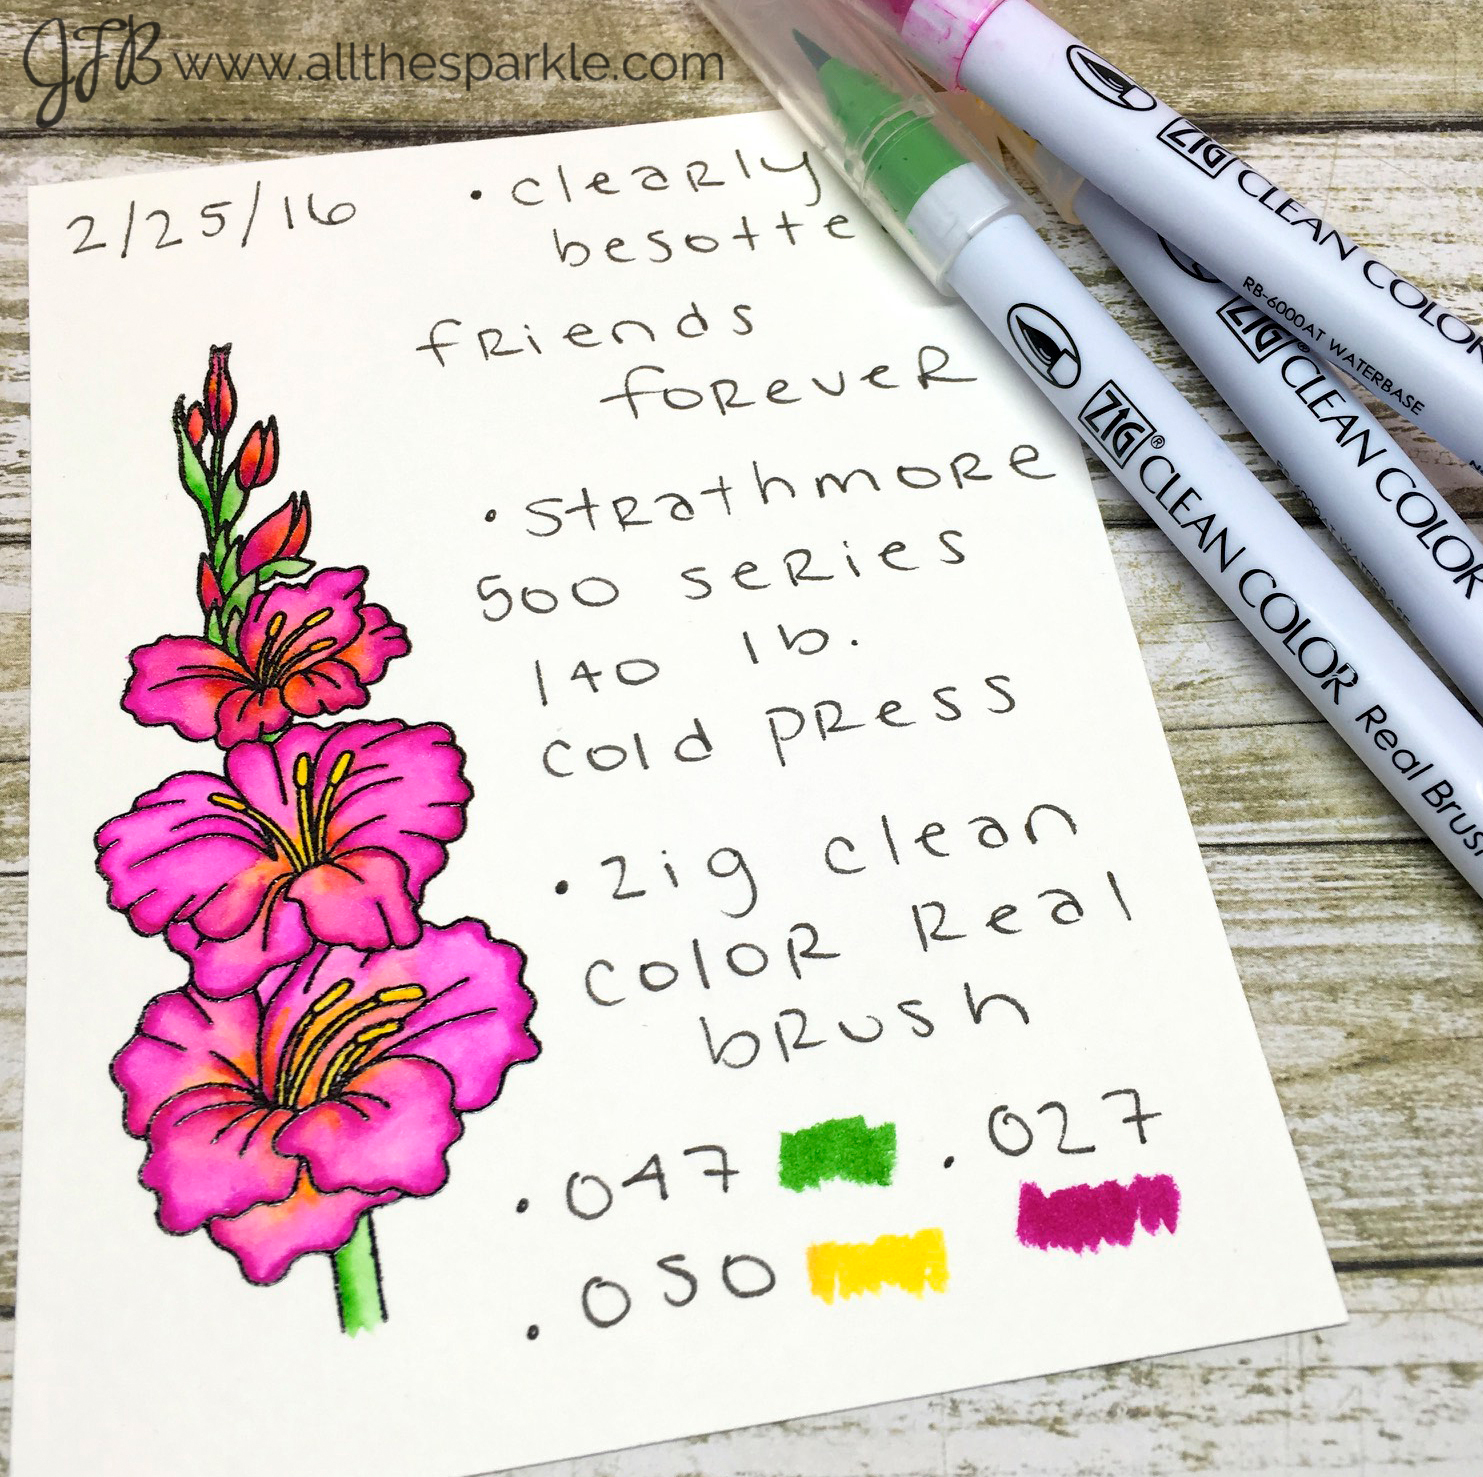 JFB www.allthesparkle.com
2/25/16
• clearly
besotte
friends
forever
• strathmore
500 series
140 lb.
cold press
• zig clean
color real
brush
• 047
• 027
• 050
ZIG CLEAN COLOR
RB-6000AT WATERBASE
ZIG CLEAN COLOR
ZIG® CLEAN COLOR Real Brush